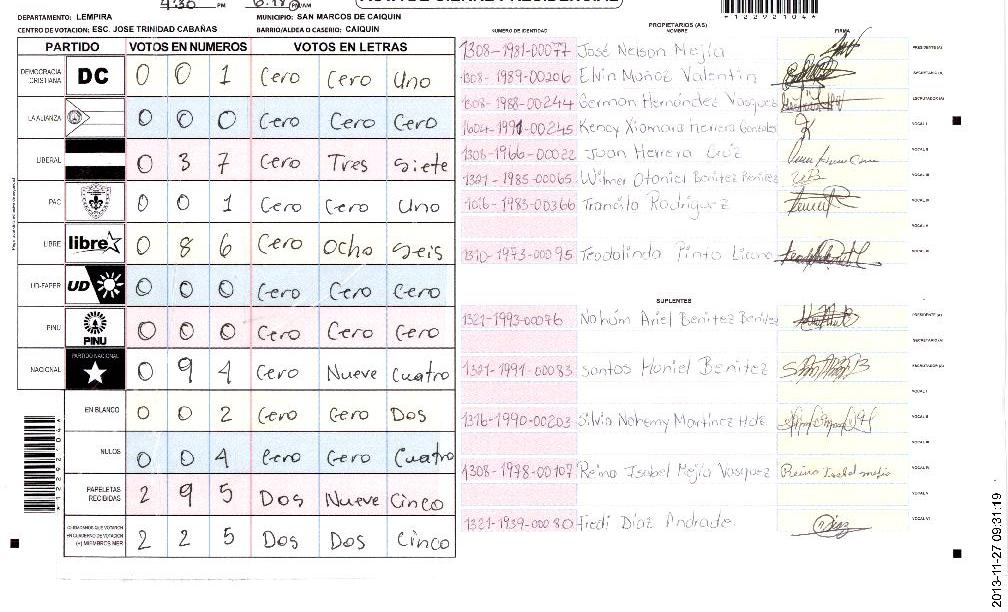 4:30 PM 6:18 PM/AM
DEPARTAMENTO: LEMPIRA MUNICIPIO: SAN MARCOS DE CAIQUIN
CENTRO DE VOTACION: ESC. JOSE TRINIDAD CABAÑAS BARRIO/ALDEA O CASERIO: CAIQUIN
*1229Z104*
PARTIDO VOTOS EN NUMEROS VOTOS EN LETRAS
DEMOCRACIA CRISTIANA DC 0 0 1 Cero Cero Uno
LA ALIANZA 0 0 0 Cero Cero Cero
LIBERAL 0 3 7 Cero Tres Siete
PAC 0 0 1 Cero Cero Uno
LIBRE libre 0 8 6 Cero Ocho Seis
UD-FAPER UD 0 0 0 Cero Cero Cero
PINU PINU 0 0 0 Cero Cero Cero
NACIONAL PARTIDO NACIONAL 0 9 4 Cero Nueve Cuatro
EN BLANCO 0 0 2 Cero Cero Dos
NULOS 0 0 4 Cero Cero Cuatro
PAPELETAS RECIBIDAS 2 9 5 Dos Nueve Cinco
CIUDADANOS QUE VOTARON EN CUADERNO DE VOTACION (+) MIEMBROS MER 2 2 5 Dos Dos Cinco
PROPIETARIOS (AS)
NUMERO DE IDENTIDAD NOMBRE FIRMA
1308-1981-00077 José Nelson Mejía PRESIDENTE (A)
1308-1989-00206 Elvin Muñoz Valentin SECRETARIO (A)
1308-1988-00244 German Hernández Vásquez ESCRUTADOR (A)
1604-1991-00245 Kency Xiomara Herrera Gonzales VOCAL I
1308-1966-00022 Juan Herrera Cruz VOCAL II
1321-1985-00065 Wilmer Otoniel Benitez Benitez VOCAL III
1016-1983-00366 Transito Rodríguez VOCAL IV
VOCAL V
1310-1973-00095 Teodolinda Pinto VOCAL VI
SUPLENTES
1321-1993-00076 Nahúm Ariel Benitez Benitez PRESIDENTE (A)
SECRETARIO (A)
1321-1991-00083 Santos Haniel Benitez ESCRUTADOR (A)
VOCAL I
1316-1990-00203 Silvia Nohemy Martínez VOCAL II
VOCAL III
1308-1978-00107 Reina Isabel Mejía Vasquez Reina Isabel mejia VOCAL IV
VOCAL V
1321-1939-00080 Fredi Díaz Andrade VOCAL VI
2013-11-27 09:31:19